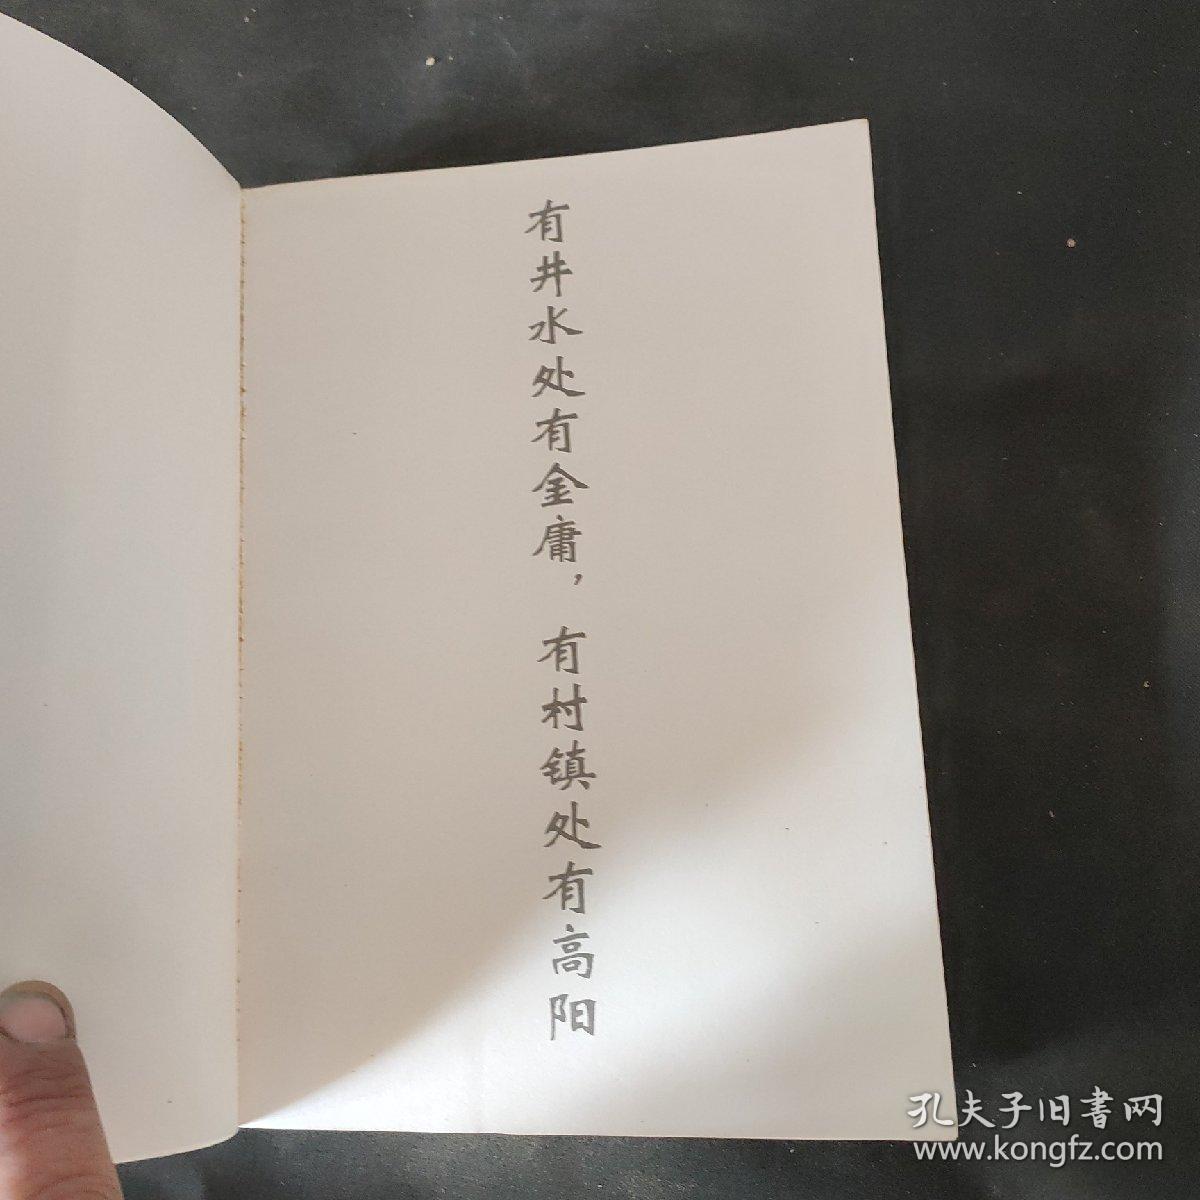 有井水处有金庸，有村镇处有高阳
孔夫子旧書网
www.kongfz.com